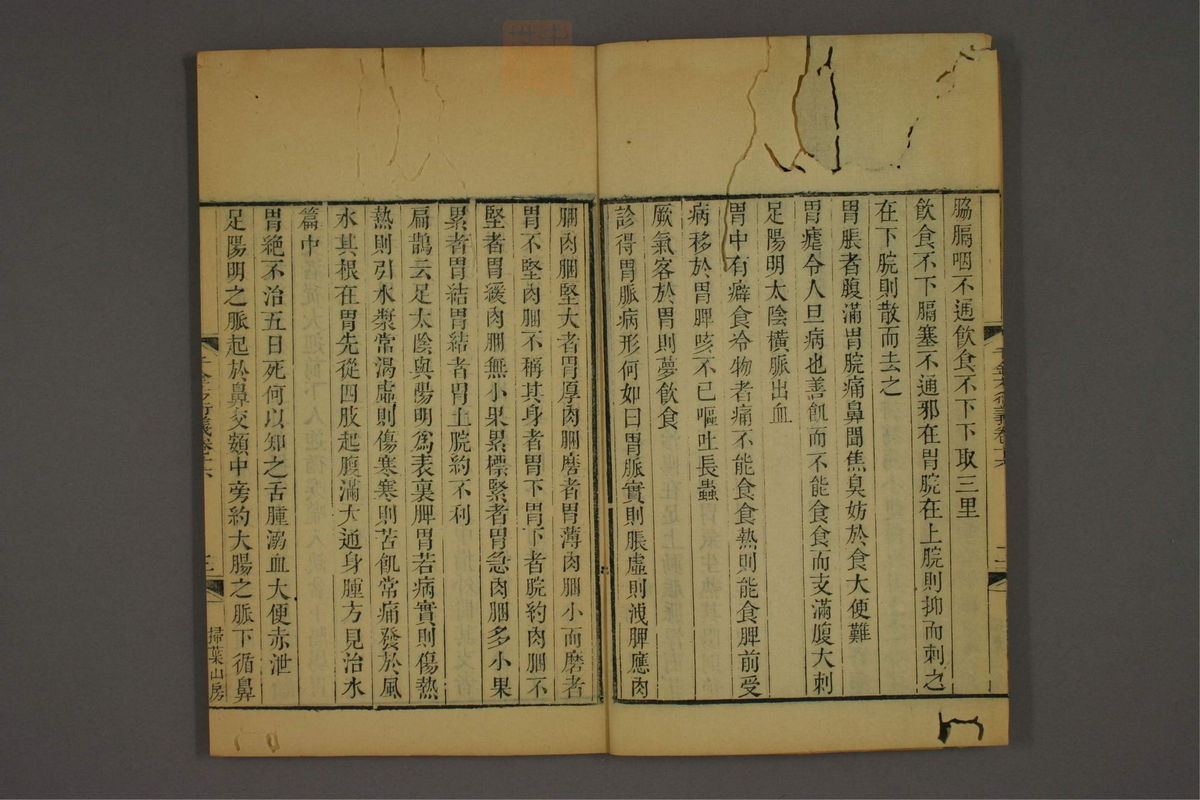 脇膈咽不通飲食不下下取三里
飲食不下膈塞不通邪在胃脘在上脘則抑而刺之
在下脘則散而去之
胃脹者腹滿胃脘痛鼻聞焦臭妨於食大便難
胃瘧令人旦病也善飢而不能食食而支滿腹大刺
足陽明太陰橫脈出血
胃中有癖食冷物者痛不能食食熱則能食脾前受
病移於胃脾咳不已嘔吐長蟲
厥氣客於胃則夢飲食
診得胃脈病形何如曰胃脈實則脹虛則洩脾應肉
膕肉膕堅大者胃厚肉膕麿者胃薄肉膕小而麿者
胃不堅肉膕不稱其身者胃下胃下者脘約肉膕不
堅者胃緩肉膕無小果累標緊者胃急肉膕多小果
累者胃結胃結者胃上脘約不利
扁鵲云足太陰與陽明為表裏脾胃若病實則傷熱
熱則引水漿常渴虛則傷寒寒則苦飢常痛發於風
水其根在胃先從四肢起腹滿大通身腫方見治水
篇中
胃絕不治五日死何以知之舌腫溺血大便赤泄
足陽明之脈起於鼻交頞中旁約大腸之脈下循鼻
千金方衍義卷十六
三
掃葉山房